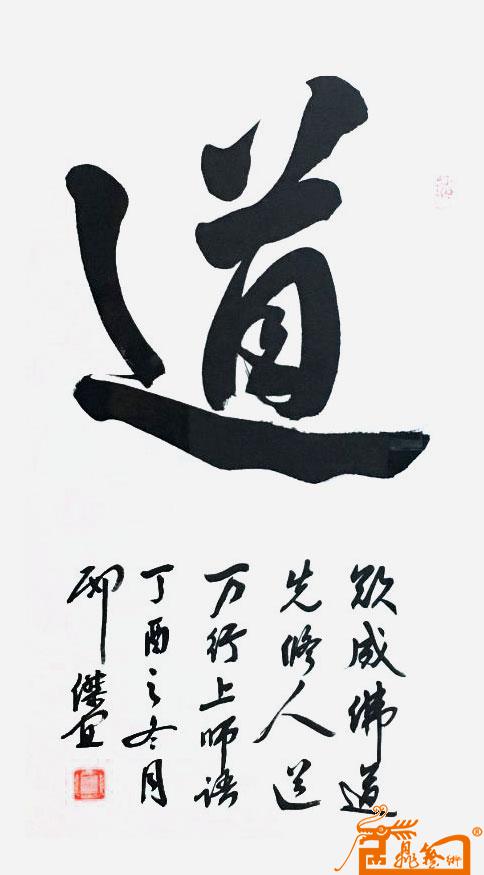 道
欲成佛道
先修人道
万行上师语
丁酉之冬月